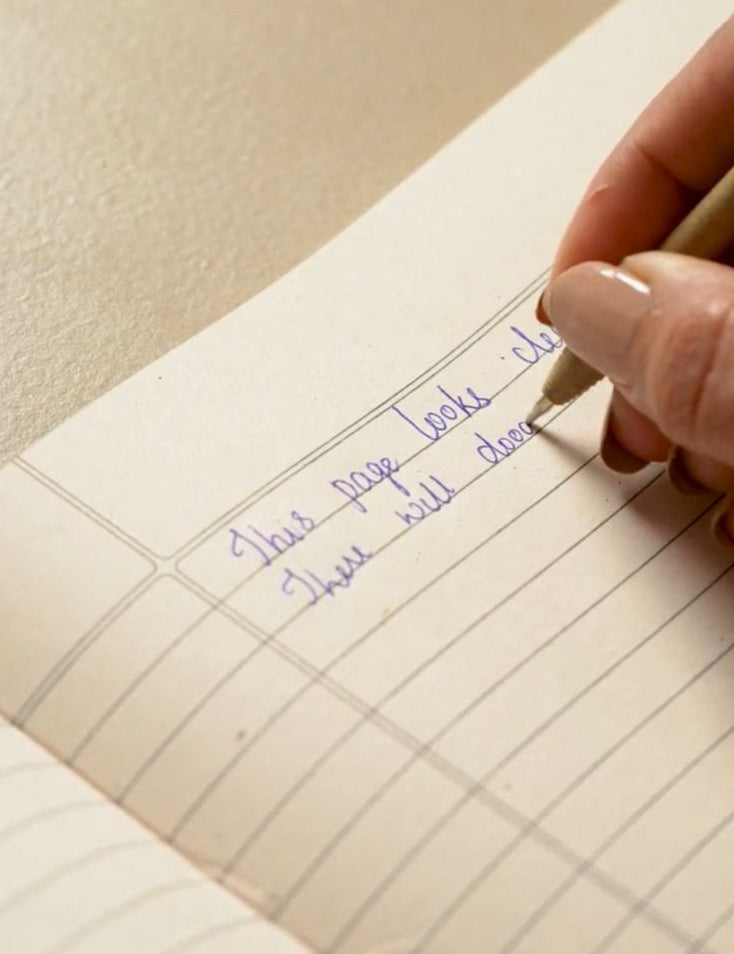 This page looks cle
There will dooo